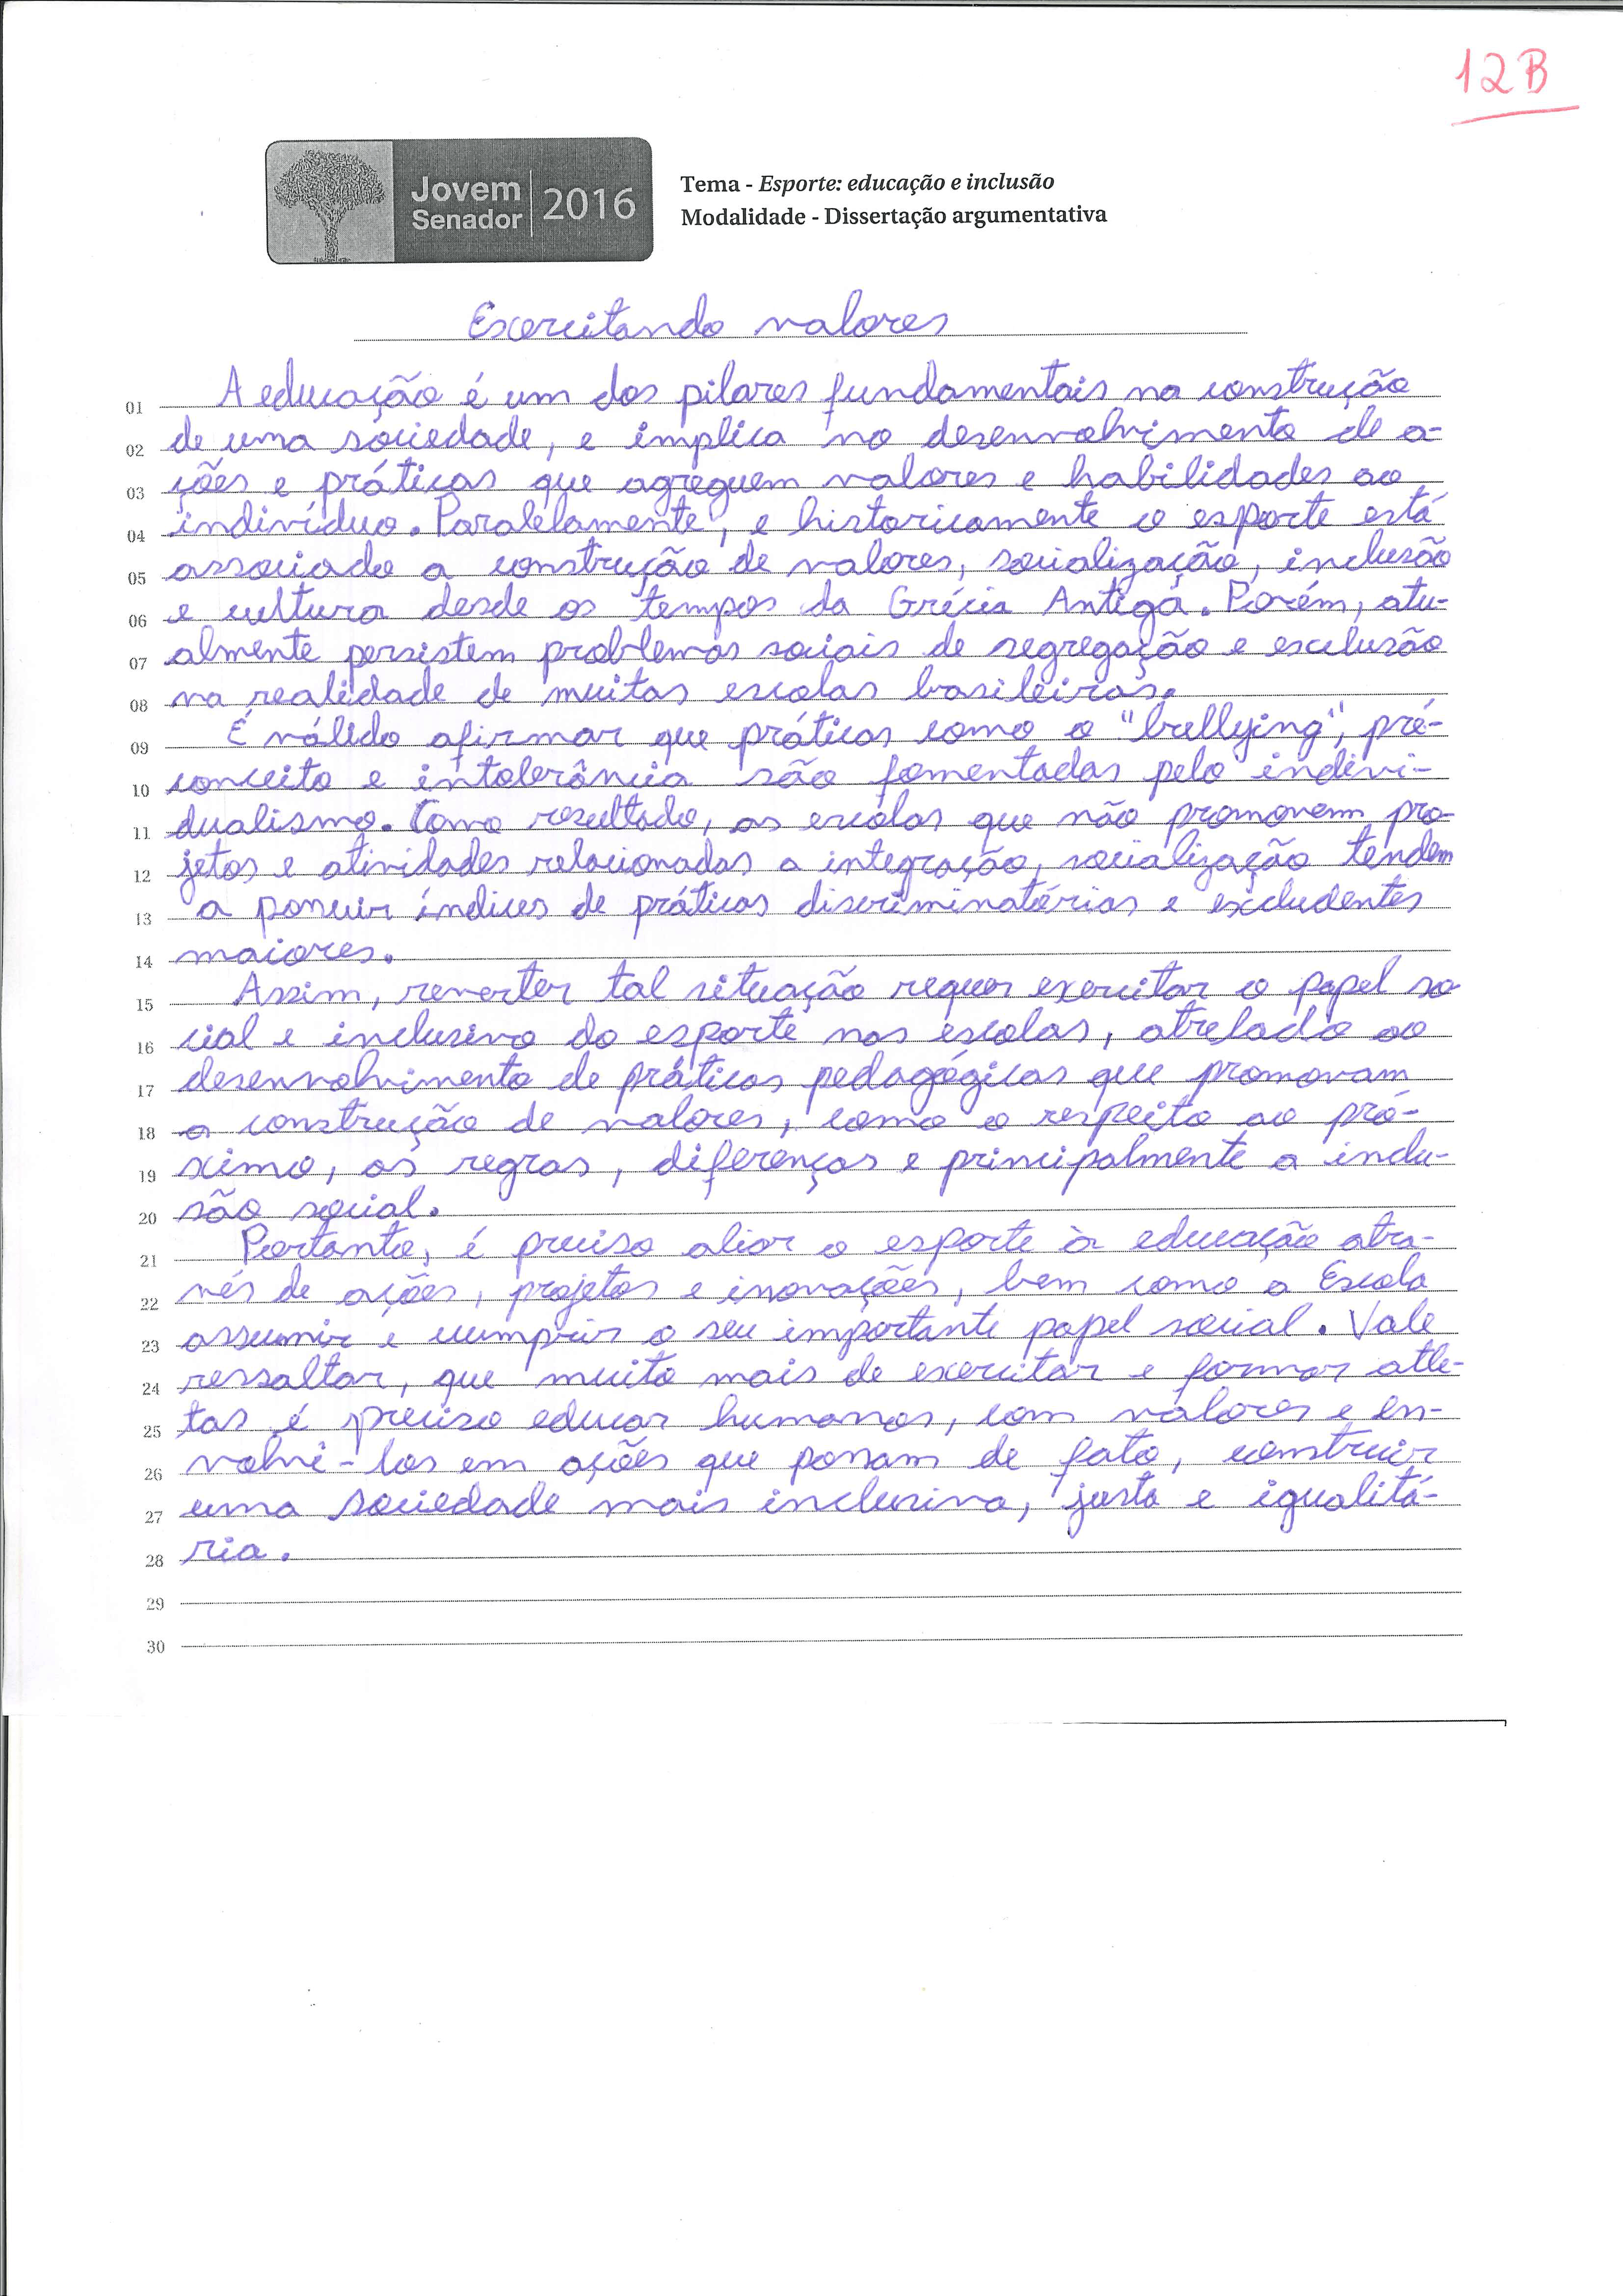 12B
Jovem
Senador
2016
Tema - Esporte: educação e inclusão
Modalidade - Dissertação argumentativa
Exercitando valores
01 A educação é um dos pilares fundamentais na construção
02 de uma sociedade, e implica no desenvolvimento de a-
03 ções e práticas que agreguem valores e habilidades ao
04 indivíduo. Paralelamente, e historicamente o esporte está
05 associado a construção de valores, socialização, inclusão
06 e cultura desde os tempos da Grécia Antiga. Porém, atu-
07 almente persistem problemas sociais de segregação e exclusão
08 na realidade de muitas escolas brasileiras.
09 É válido afirmar que práticas como o "bullying", pré-
10 conceito e intolerância são fomentadas pelo indivi-
11 dualismo. Como resultado, as escolas que não promovem pro-
12 jetos e atividades relacionadas a integração, socialização tendem
13 a possuir índices de práticas discriminatórias e excludentes
14 maiores.
15 Assim, reverter tal situação requer exercitar o papel so
16 cial e inclusivo do esporte nas escolas, atrelado ao
17 desenvolvimento de práticas pedagógicas que promovam
18 a construção de valores, como o respeito ao pró-
19 ximo, as regras, diferenças e principalmente a inclu-
20 são social.
21 Portanto, é preciso aliar o esporte à educação atra-
22 vés de ações, projetos e inovações, bem como a Escola
23 assumir e cumprir o seu importante papel social. Vale
24 ressaltar, que muito mais de exercitar e formar atle-
25 tas é preciso educar humanos, com valores e en-
26 volvê-los em ações que possam de fato, construir
27 uma sociedade mais inclusiva, justa e igualitá-
28 ria.
29
30